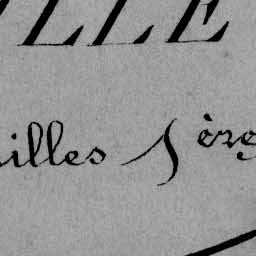 ILLE
illes 1ère